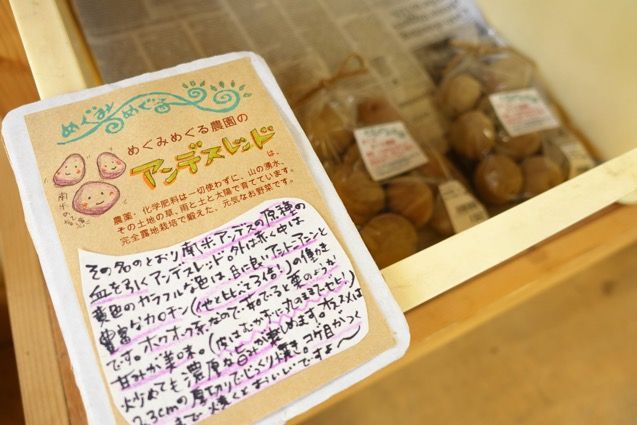 めぐみ
めぐる
めぐみめぐる農園の
アンデスレッド
は、
農薬・化学肥料は一切使わずに、山の湧水、
その土地の草、雨と土と太陽で育てています。
完全露地栽培で鍛えた、元気なお野菜です。
その名のとおり南米アンデスの原種の
血を引くアンデスレッド。外は赤く中は
黄色のカラフルな色は、目に良いアントシアニンと
豊富なカロチン(他と比べて3倍!)の働き
です。ホクホク系なので、茹でると栗のような
甘みが美味。(皮はむかずに大丈夫ません!)
炒めても濃厚な旨みが楽しめます。たとえば
2、3cmの厚切りでじっくり焼き、コゲ目がつく
まで焼くとおいしいですよ〜